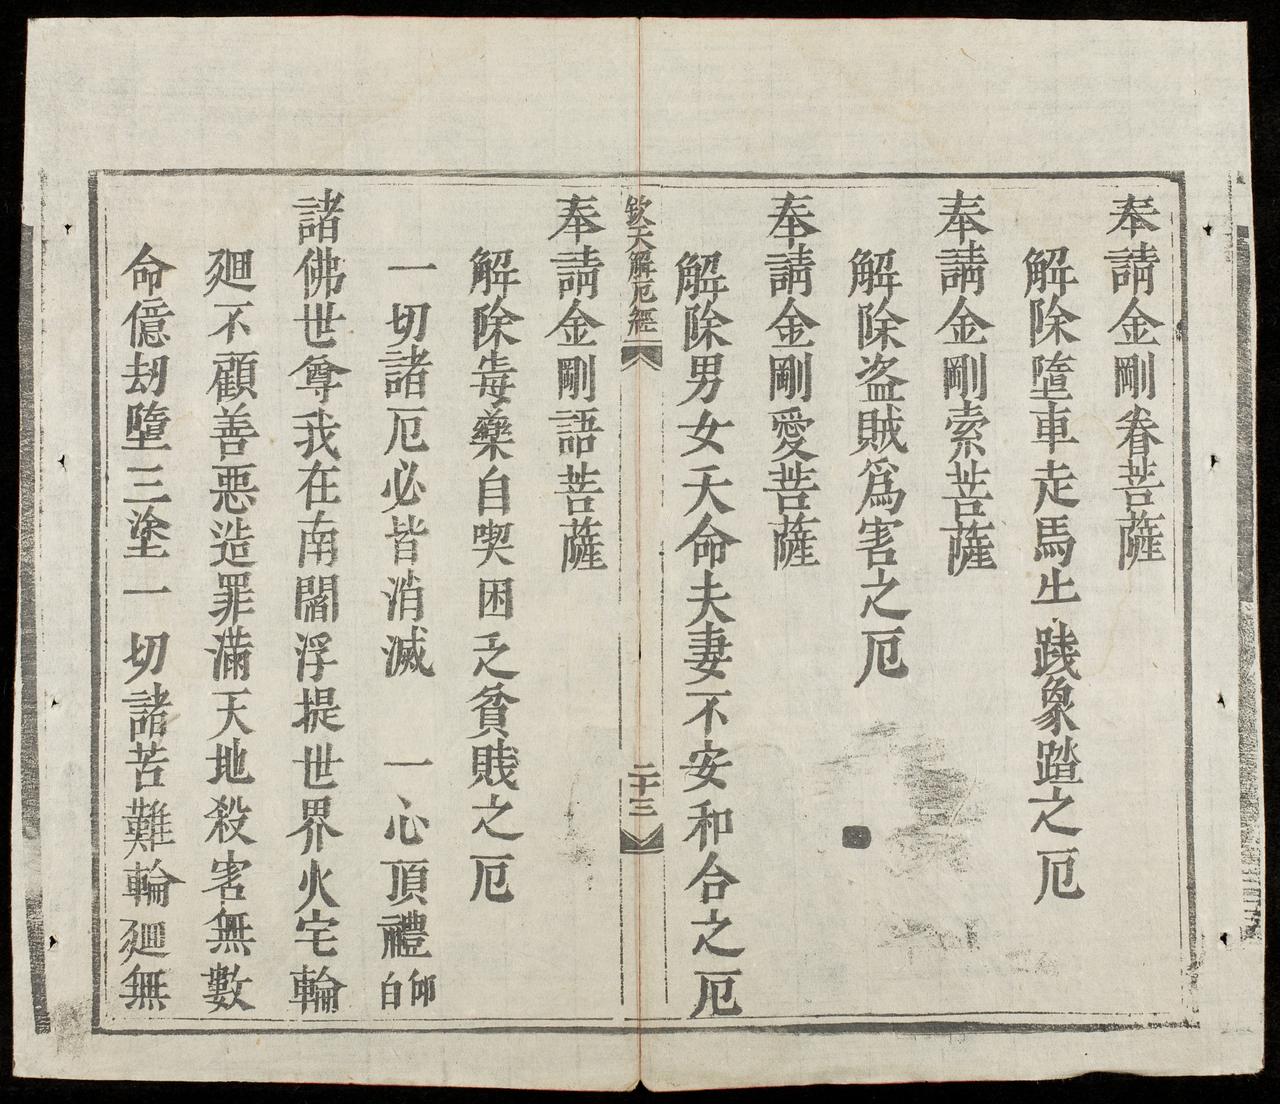 奉請金剛眷菩薩
解除墮車走馬生踐象踏之厄
奉請金剛索菩薩
解除盗賊爲害之厄
奉請金剛愛菩薩
解除男女夭命夫妻不安和合之厄
欽天解厄經
二十三
奉請金剛語菩薩
解除毒藥自喫困乏貧賎之厄
一切諸厄必皆消滅　一心頂禮仰白
諸佛世尊我在南閻浮提世界火宅輪
廻不顧善惡造罪滿天地殺害無數
命億劫墮三塗一切諸苦難輪廻無